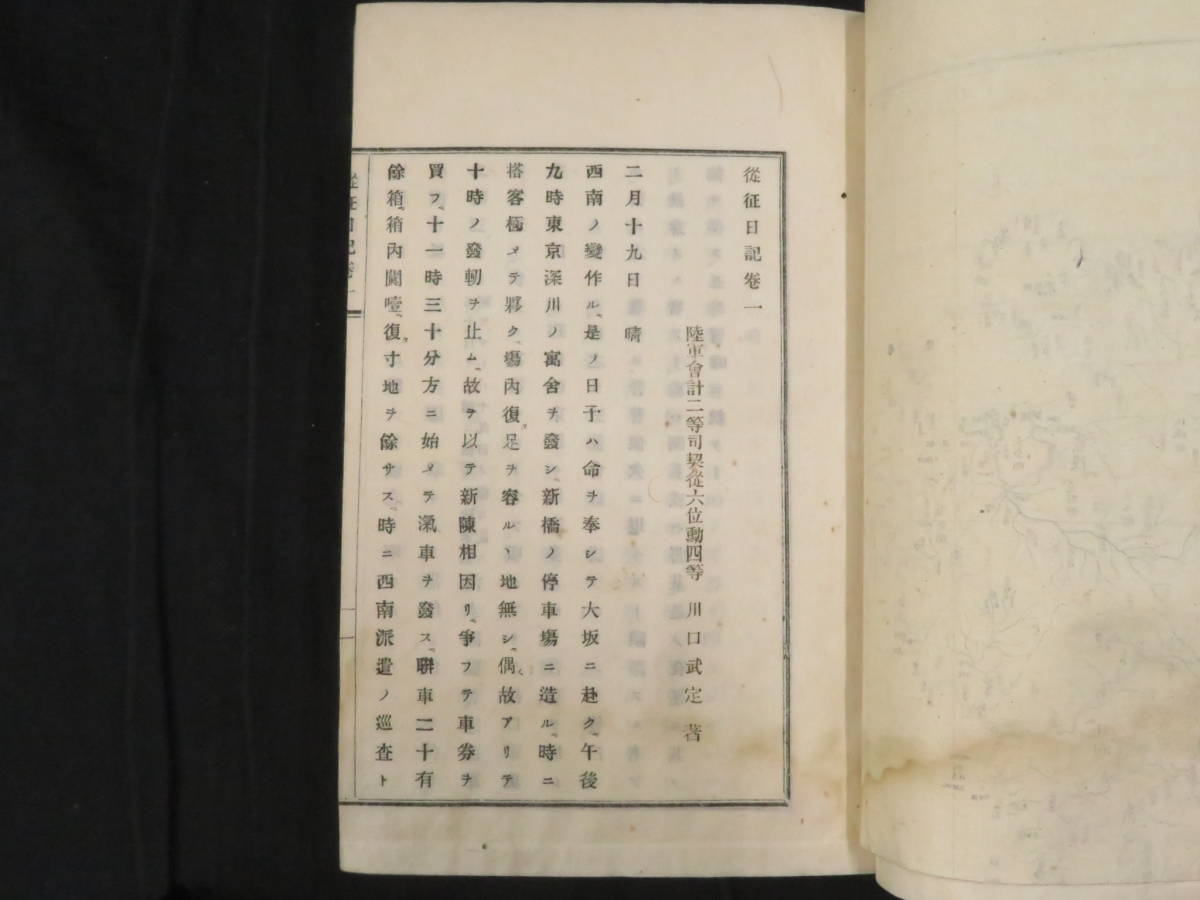 從征日記卷一
陸軍會計二等司契從六位勳四等 川口武定 著
二月十九日 晴
西南ノ變作ル、是ノ日予ハ命ヲ奉シテ大坂ニ赴ク、午後
九時東京深川ノ寓舍ヲ發シ、新橋ノ停車場ニ造ル、時ニ
搭客極メテ夥ク、場内復タ足ヲ容ルヽ地無シ、偶〻故アリテ
十時ノ發軔ヲ止ム、故ヲ以テ新陳相因リ、爭フテ車券ヲ
買フ、十一時三十分方ニ始メテ滊車ヲ發ス、聯車二十有
餘箱、箱内闐噎、復タ寸地ヲ餘サス、時ニ西南派遣ノ巡査ト
從征日記卷一
一